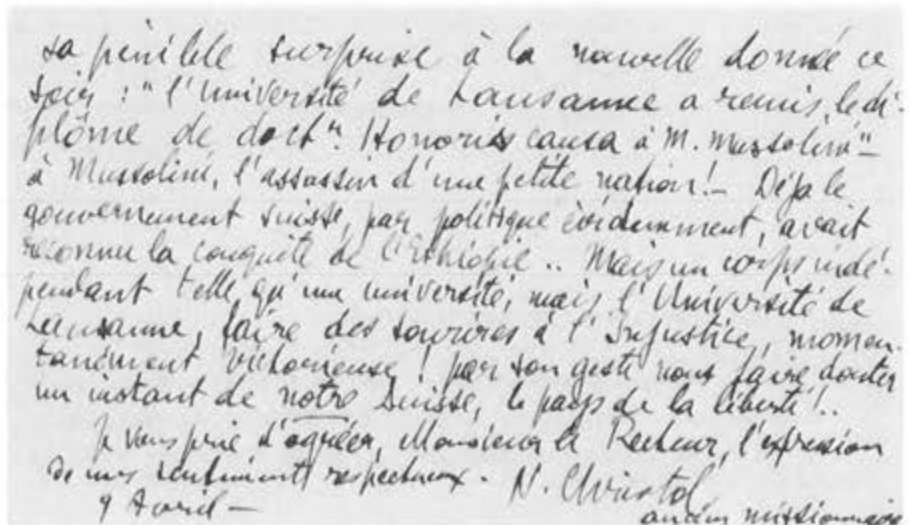 sa pénible surprise à la nouvelle donnée ce
soir : "l'Université de Lausanne a remis le di-
plôme de doctr. Honoris causa à M. Mussolini" –
à Mussolini, l'assassin d'une petite nation! – Déjà le
gouvernement suisse, par politique évidemment, avait
reconnu la conquête de l'Ethiopie .. Mais un corps indé-
pendant telle qu'une université, mais l'Université de
Lausanne, faire des sourires à l'Injustice, momen-
tanément victorieuse! par son geste nous faire douter
un instant de notre Suisse, le pays de la liberté!..
Je vous prie d'agréer, Monsieur le Recteur, l'expression
de mes sentiments respectueux. N. Christol
9 Avril – ancien missionnaire